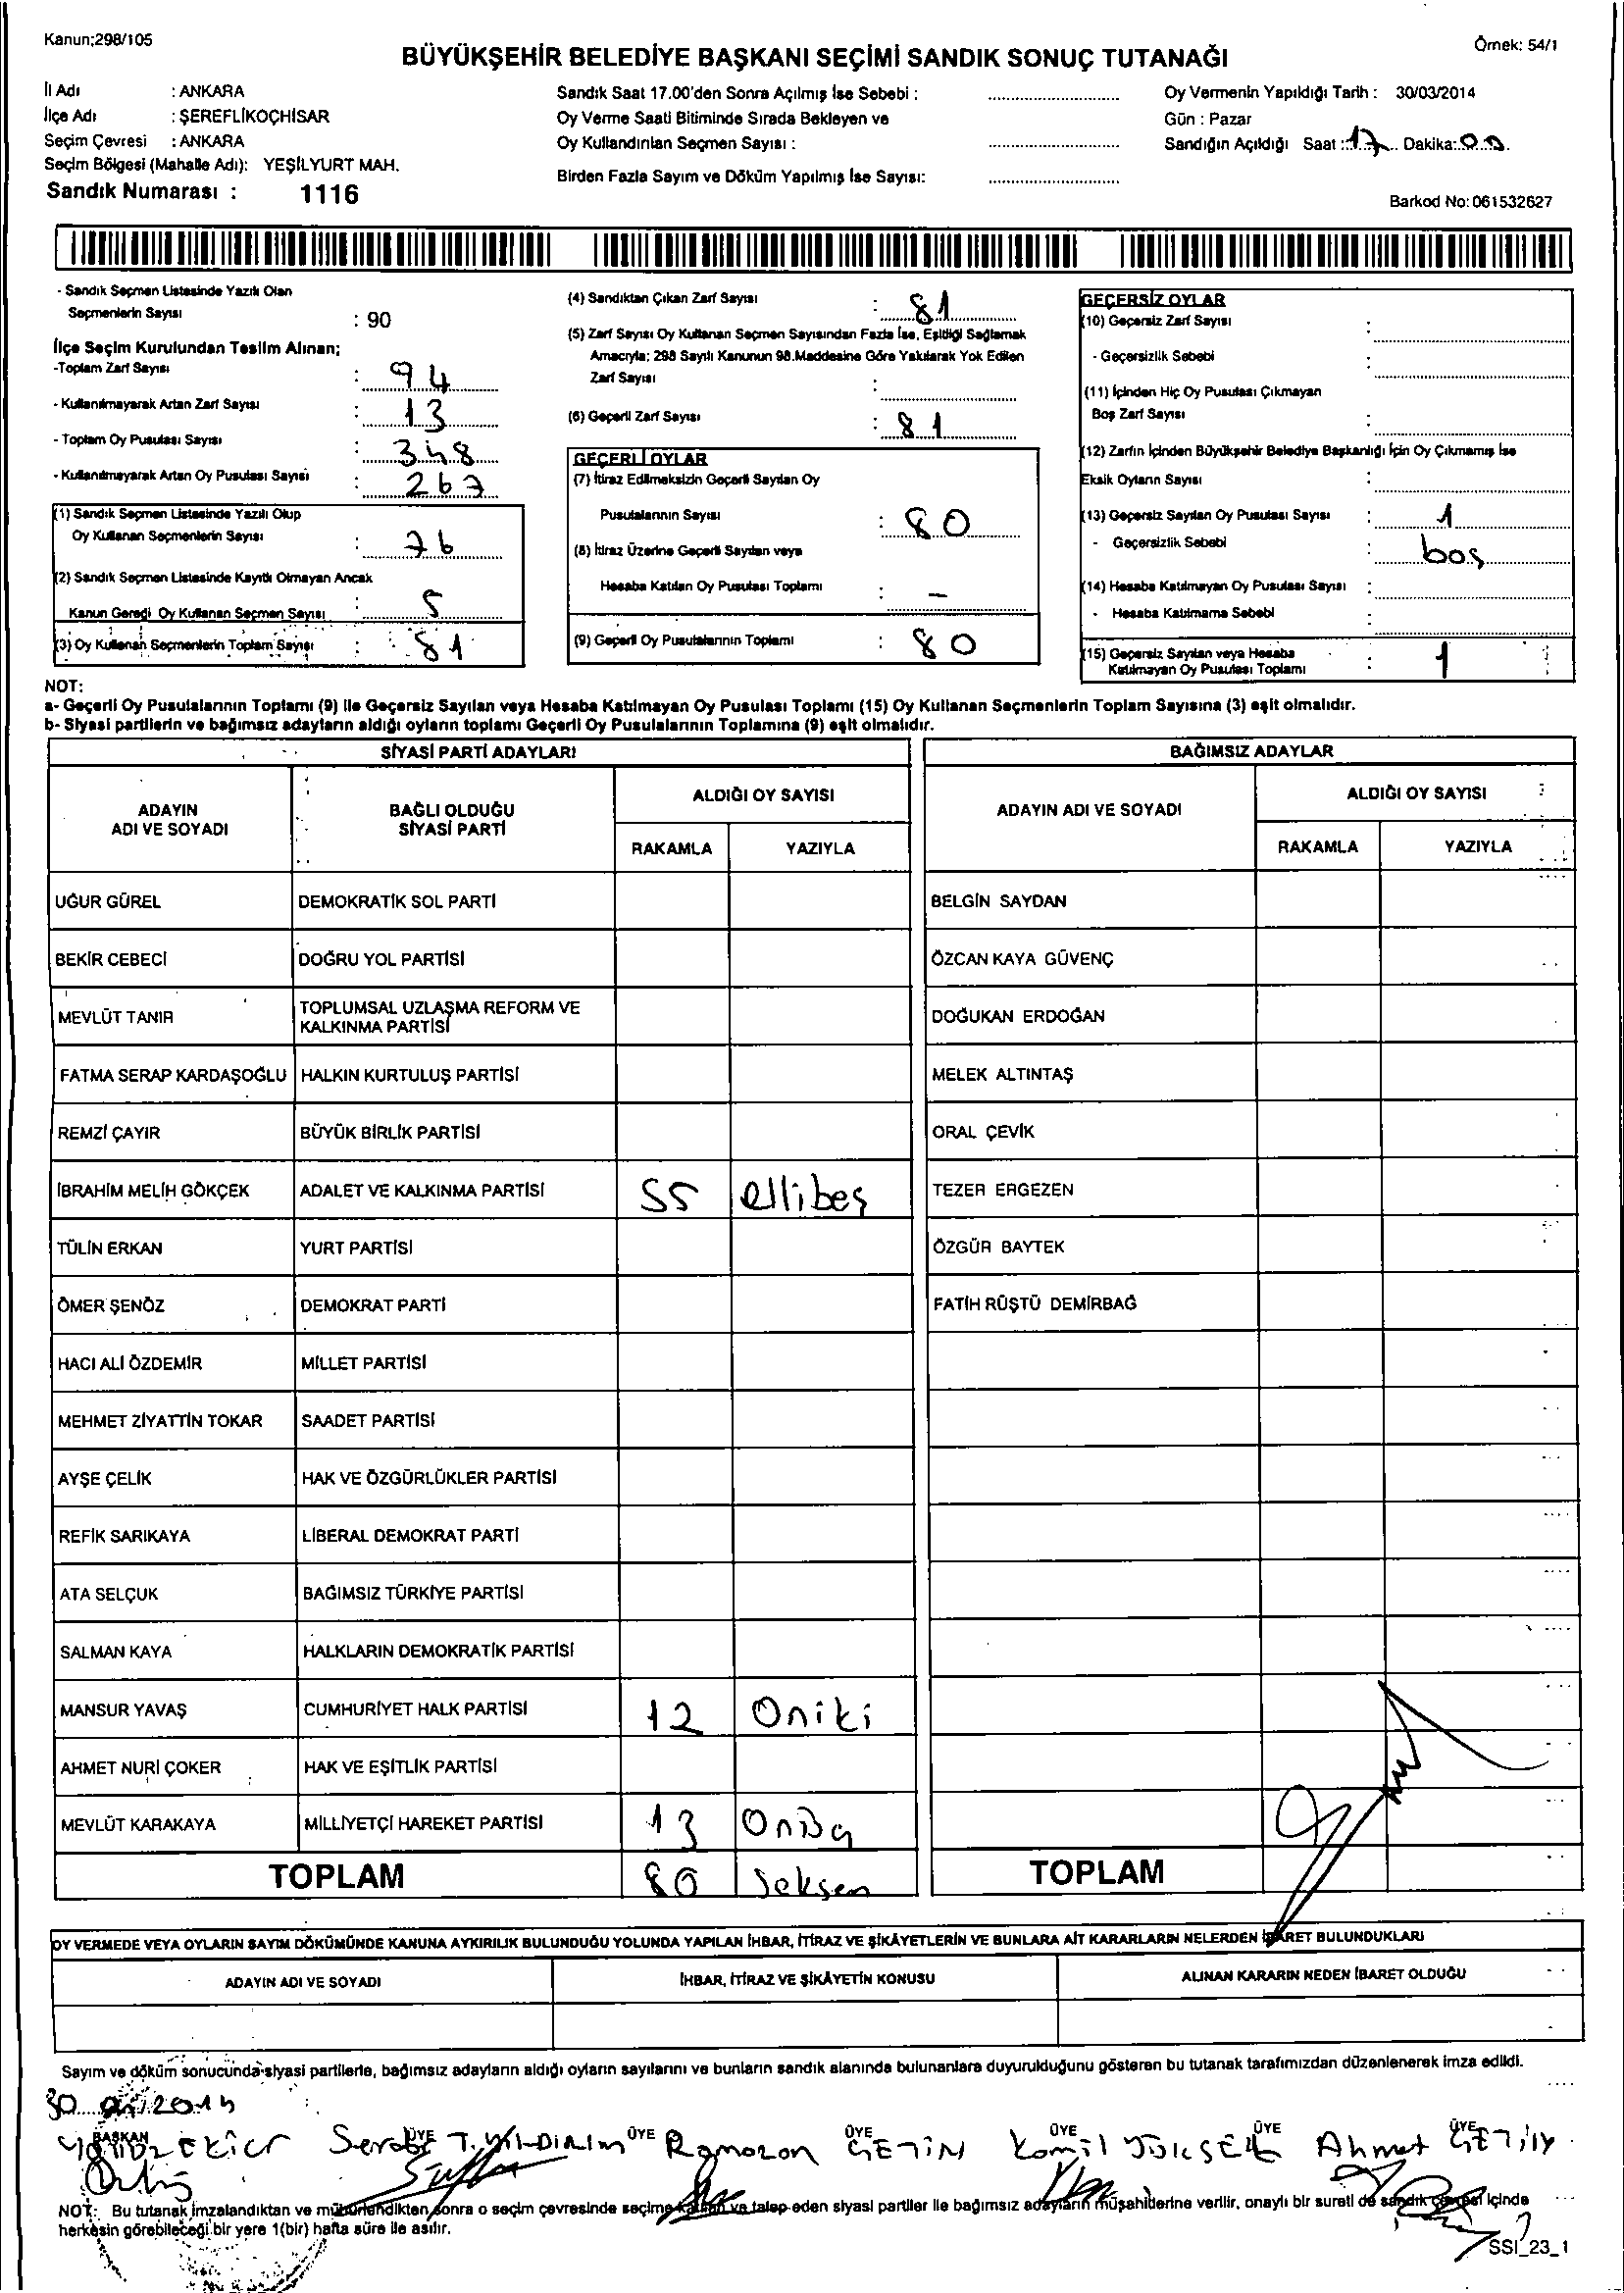 Kanun;298/105
Örnek: 54/1
BÜYÜKŞEHİR BELEDİYE BAŞKANI SEÇİMİ SANDIK SONUÇ TUTANAĞI
İl Adı : ANKARA
İlçe Adı : ŞEREFLİKOÇHİSAR
Seçim Çevresi : ANKARA
Seçim Bölgesi (Mahalle Adı): YEŞİLYURT MAH.
Sandık Numarası : 1116
Sandık Saat 17.00'den Sonra Açılmış İse Sebebi :
Oy Verme Saati Bitiminde Sırada Bekleyen ve
Oy Kullandırılan Seçmen Sayısı :
Birden Fazla Sayım ve Döküm Yapılmış İse Sayısı:
Oy Vermenin Yapıldığı Tarih : 30/03/2014
Gün : Pazar
Sandığın Açıldığı Saat : 17 Dakika: 00
Barkod No: 061532627
- Sandık Seçmen Listesinde Yazılı Olan
Seçmenlerin Sayısı : 90
İlçe Seçim Kurulundan Teslim Alınan;
-Toplam Zarf Sayısı : 94
- Kullanılmayarak Artan Zarf Sayısı : 13
- Toplam Oy Pusulası Sayısı : 348
- Kullanılmayarak Artan Oy Pusulası Sayısı : 267
(1) Sandık Seçmen Listesinde Yazılı Olup
Oy Kullanan Seçmenlerin Sayısı : 76
(2) Sandık Seçmen Listesinde Kayıtlı Olmayan Ancak
Kanun Gereği Oy Kullanan Seçmen Sayısı : 5
(3) Oy Kullanan Seçmenlerin Toplam Sayısı : 81
(4) Sandıktan Çıkan Zarf Sayısı : 81
(5) Zarf Sayısı Oy Kullanan Seçmen Sayısından Fazla İse, Eşitliği Sağlamak
Amacıyla; 298 Sayılı Kanunun 98.Maddesine Göre Yakılarak Yok Edilen
Zarf Sayısı :
(6) Geçerli Zarf Sayısı : 81
GEÇERLİ OYLAR
(7) İtiraz Edilmeksizin Geçerli Sayılan Oy
Pusulalarının Sayısı : 80
(8) İtiraz Üzerine Geçerli Sayılan veya
Hesaba Katılan Oy Pusulası Toplamı : -
(9) Geçerli Oy Pusulalarının Toplamı : 80
GEÇERSİZ OYLAR
(10) Geçersiz Zarf Sayısı :
- Geçersizlik Sebebi :
(11) İçinden Hiç Oy Pusulası Çıkmayan
Boş Zarf Sayısı :
(12) Zarfın İçinden Büyükşehir Belediye Başkanlığı İçin Oy Çıkmamış İse
Eksik Oyların Sayısı :
(13) Geçersiz Sayılan Oy Pusulası Sayısı : 1
- Geçersizlik Sebebi : boş
(14) Hesaba Katılmayan Oy Pusulası Sayısı :
- Hesaba Katılmama Sebebi :
(15) Geçersiz Sayılan veya Hesaba
Katılmayan Oy Pusulası Toplamı : 1
NOT:
a- Geçerli Oy Pusulalarının Toplamı (9) ile Geçersiz Sayılan veya Hesaba Katılmayan Oy Pusulası Toplamı (15) Oy Kullanan Seçmenlerin Toplam Sayısına (3) eşit olmalıdır.
b- Siyasi partilerin ve bağımsız adayların aldığı oyların toplamı Geçerli Oy Pusulalarının Toplamına (9) eşit olmalıdır.
SİYASİ PARTİ ADAYLARI
ADAYIN ADI VE SOYADI
BAĞLI OLDUĞU SİYASİ PARTİ
ALDIĞI OY SAYISI
RAKAMLA YAZIYLA
UĞUR GÜREL DEMOKRATİK SOL PARTİ
BEKİR CEBECİ DOĞRU YOL PARTİSİ
MEVLÜT TANIR TOPLUMSAL UZLAŞMA REFORM VE
KALKINMA PARTİSİ
FATMA SERAP KARDAŞOĞLU HALKIN KURTULUŞ PARTİSİ
REMZİ ÇAYIR BÜYÜK BİRLİK PARTİSİ
İBRAHİM MELİH GÖKÇEK ADALET VE KALKINMA PARTİSİ 55 ellibeş
TÜLİN ERKAN YURT PARTİSİ
ÖMER ŞENÖZ DEMOKRAT PARTİ
HACI ALİ ÖZDEMİR MİLLET PARTİSİ
MEHMET ZİYATTİN TOKAR SAADET PARTİSİ
AYŞE ÇELİK HAK VE ÖZGÜRLÜKLER PARTİSİ
REFİK SARIKAYA LİBERAL DEMOKRAT PARTİ
ATA SELÇUK BAĞIMSIZ TÜRKİYE PARTİSİ
SALMAN KAYA HALKLARIN DEMOKRATİK PARTİSİ
MANSUR YAVAŞ CUMHURİYET HALK PARTİSİ 12 Oniki
AHMET NURİ ÇOKER HAK VE EŞİTLİK PARTİSİ
MEVLÜT KARAKAYA MİLLİYETÇİ HAREKET PARTİSİ 13
TOPLAM 80 Seksen
BAĞIMSIZ ADAYLAR
ADAYIN ADI VE SOYADI
ALDIĞI OY SAYISI
RAKAMLA YAZIYLA
BELGİN SAYDAN
ÖZCAN KAYA GÜVENÇ
DOĞUKAN ERDOĞAN
MELEK ALTINTAŞ
ORAL ÇEVİK
TEZER ERGEZEN
ÖZGÜR BAYTEK
FATİH RÜŞTÜ DEMİRBAĞ
TOPLAM
OY VERMEDE VEYA OYLARIN SAYIM DÖKÜMÜNDE KANUNA AYKIRILIK BULUNDUĞU YOLUNDA YAPILAN İHBAR, İTİRAZ VE ŞİKÂYETLERİN VE BUNLARA AİT KARARLARIN NELERDEN İBARET BULUNDUKLARI
ADAYIN ADI VE SOYADI
İHBAR, İTİRAZ VE ŞİKÂYETİN KONUSU
ALINAN KARARIN NEDEN İBARET OLDUĞU
Sayım ve döküm sonucunda siyasi partilerle, bağımsız adayların aldığı oyların sayılarını ve bunların sandık alanında bulunanlara duyurulduğunu gösteren bu tutanak tarafımızdan düzenlenerek imza edildi.
30 2014
BAŞKAN ÜYE ÜYE ÜYE ÜYE ÜYE ÜYE
Ekici T. YILDIRIM Ramazan ÇETİN Kamil YÜKSEL Ahmet ÇETİN
NOT: Bu tutanak imzalandıktan ve mühürlendikten sonra o seçim çevresinde seçime katılan ve talep eden siyasi partiler ile bağımsız adayların müşahitlerine verilir, onaylı bir sureti de sandık çevresi içinde
herkesin görebileceği bir yere 1(bir) hafta süre ile asılır.
SSI_23_1